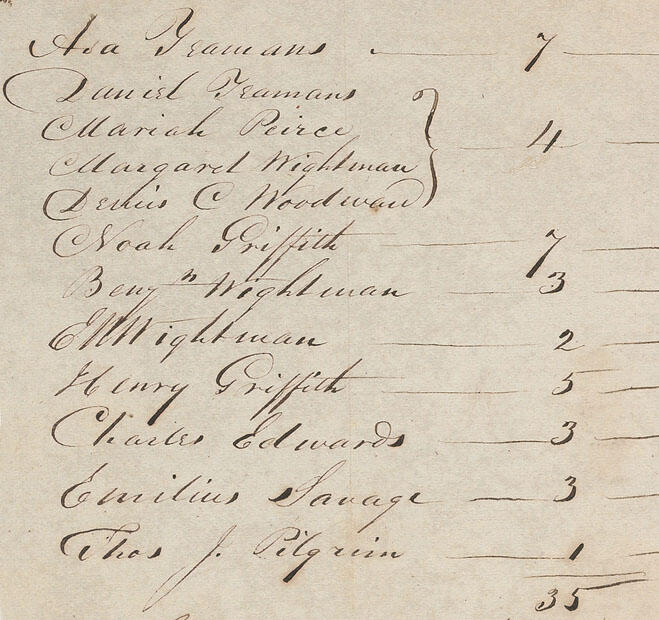 Asa Yeamans 7
Daniel Yeamans
Mariah Peirce
Margaret Wightman 4
Denius C Woodward
Noah Griffith 7
Benjn Wightman 3
EMWightman 2
Henry Griffith 5
Charles Edwards 3
Emilius Savage 3
Thos J. Pilgrim 1
35